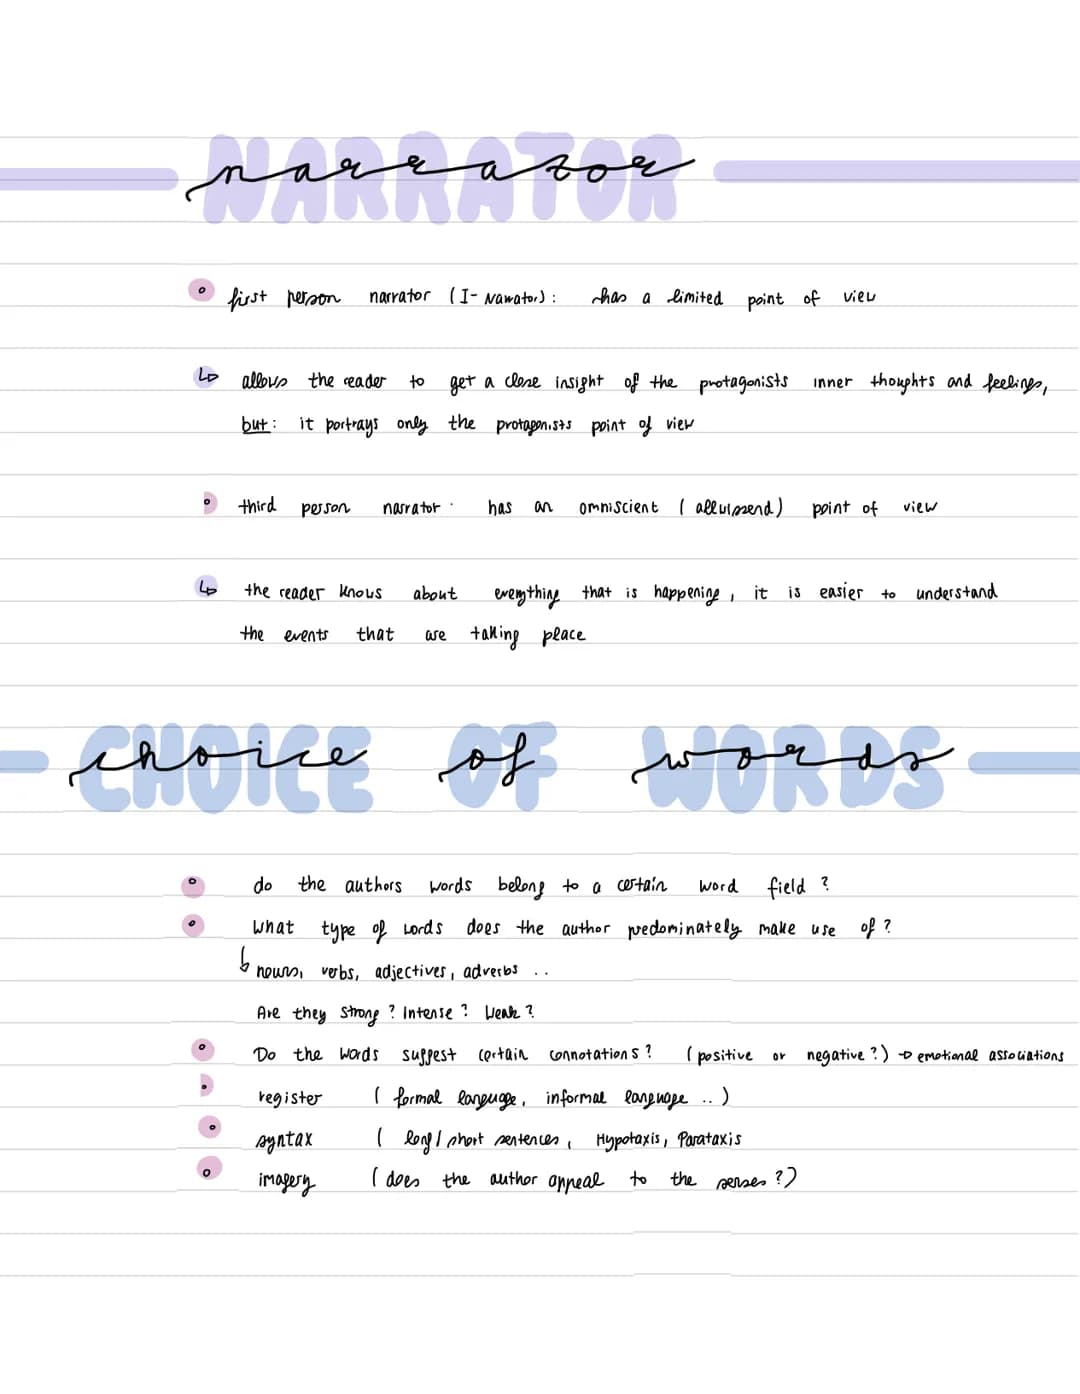 NARRATOR
narrator
first person narrator (I-Narrator): has a limited point of view
↳ allows the reader to get a close insight of the protagonists inner thoughts and feelings,
but: it portrays only the protagonists point of view
third person narrator: has an omniscient (allwissend) point of view
↳ the reader knows about everything that is happening, it is easier to understand
the events that are taking place
CHOICE OF WORDS
choice of words
do the authors words belong to a certain word field?
What type of words does the author predominately make use of?
↳ nouns, verbs, adjectives, adverbs ..
Are they strong? Intense? Weak?
Do the words suggest certain connotations? (positive or negative?) → emotional associations
register (formal language, informal language ..)
syntax (long/short sentences, Hypotaxis, Parataxis
imagery (does the author appeal to the senses?)